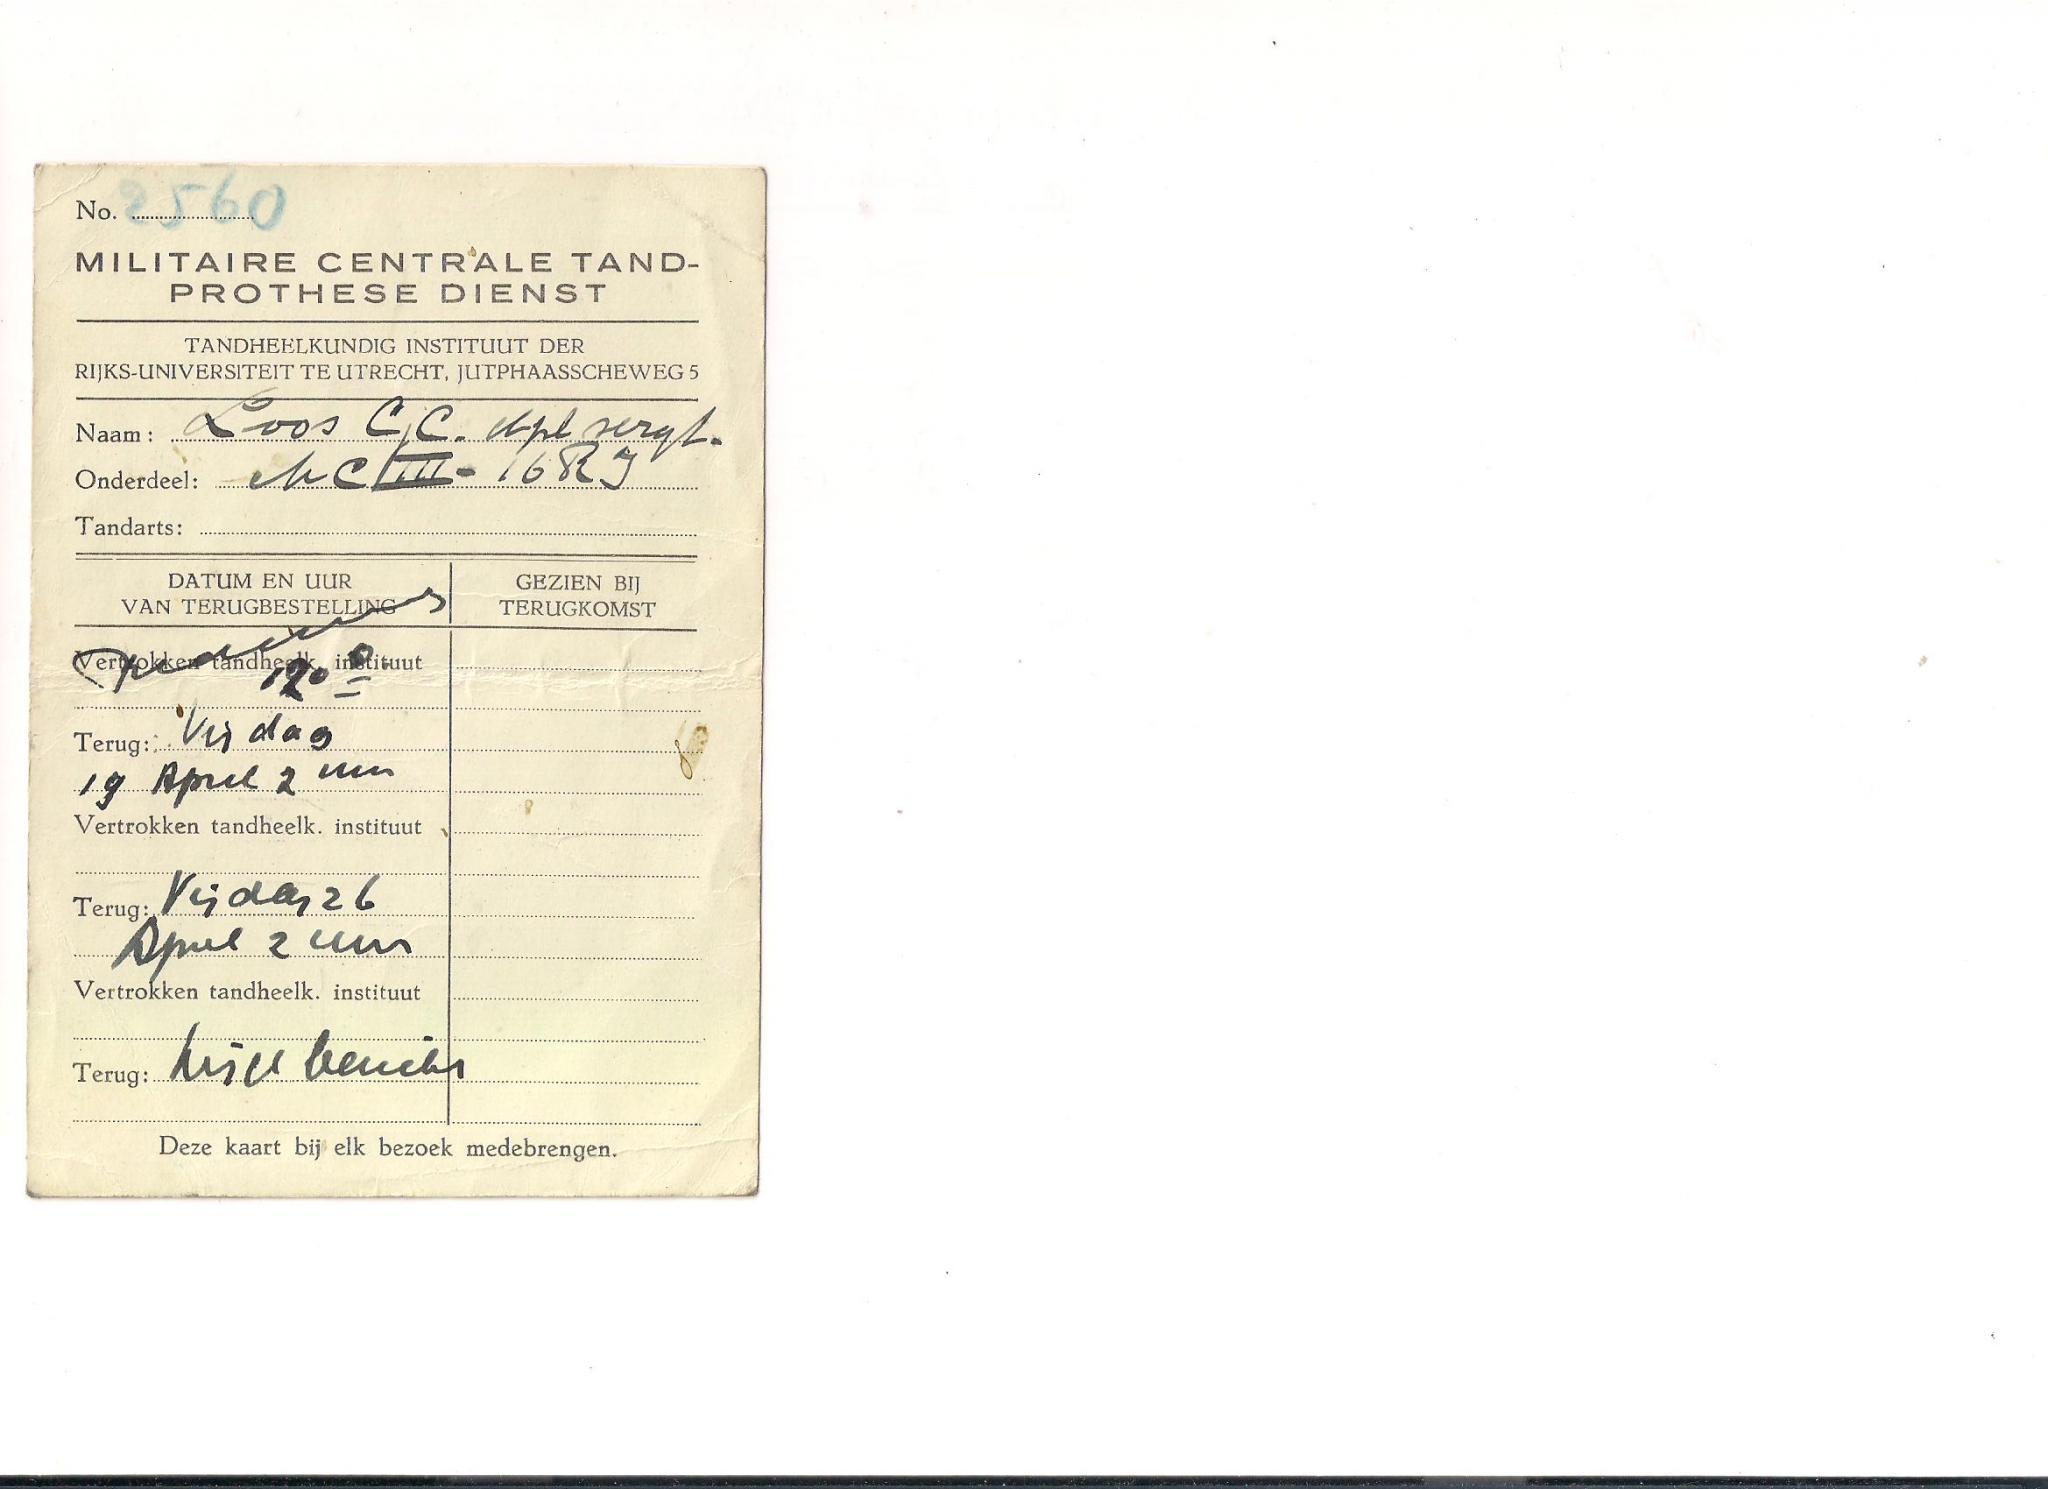 No. 2560
MILITAIRE CENTRALE TAND-
PROTHESE DIENST
TANDHEELKUNDIG INSTITUUT DER
RIJKS-UNIVERSITEIT TE UTRECHT, JUTPHAASSCHEWEG 5
Naam: Loos C.C. dpl sergt.
Onderdeel: MC III - 16 RJ
Tandarts:
DATUM EN UUR
VAN TERUGBESTELLING
GEZIEN BIJ
TERUGKOMST
Vertrokken tandheelk. instituut
Terug: Vrijdag
19 April 2 uur
Vertrokken tandheelk. instituut
Terug: Vrijdag 26
April 2 uur
Vertrokken tandheelk. instituut
Terug: krijgt bericht
Deze kaart bij elk bezoek medebrengen.